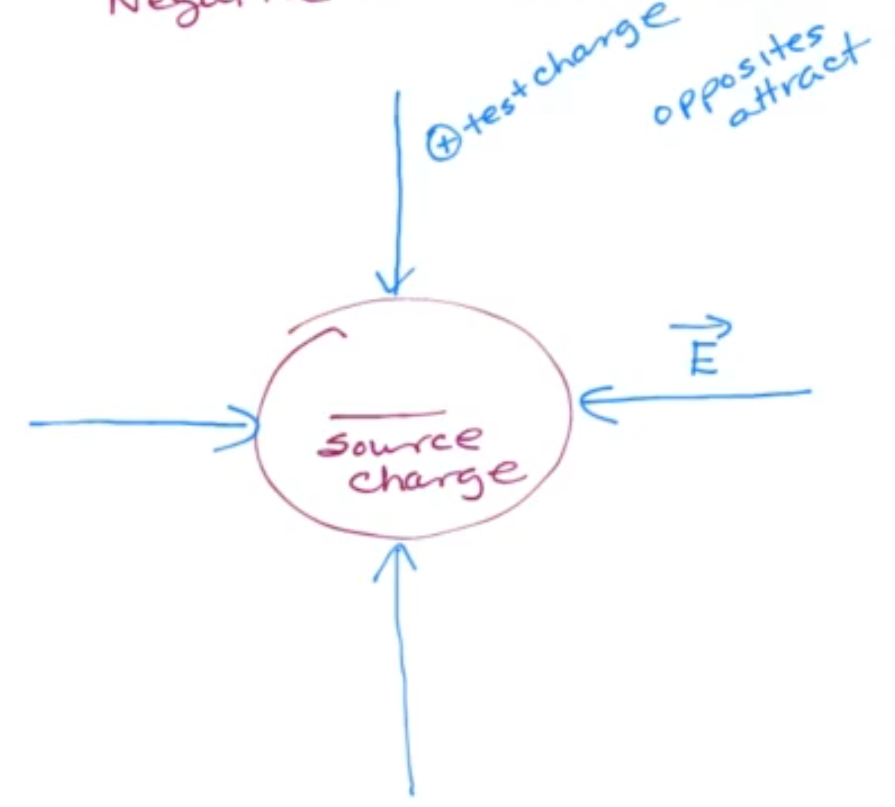 ⊕ test charge
opposites
attract
E
source
charge